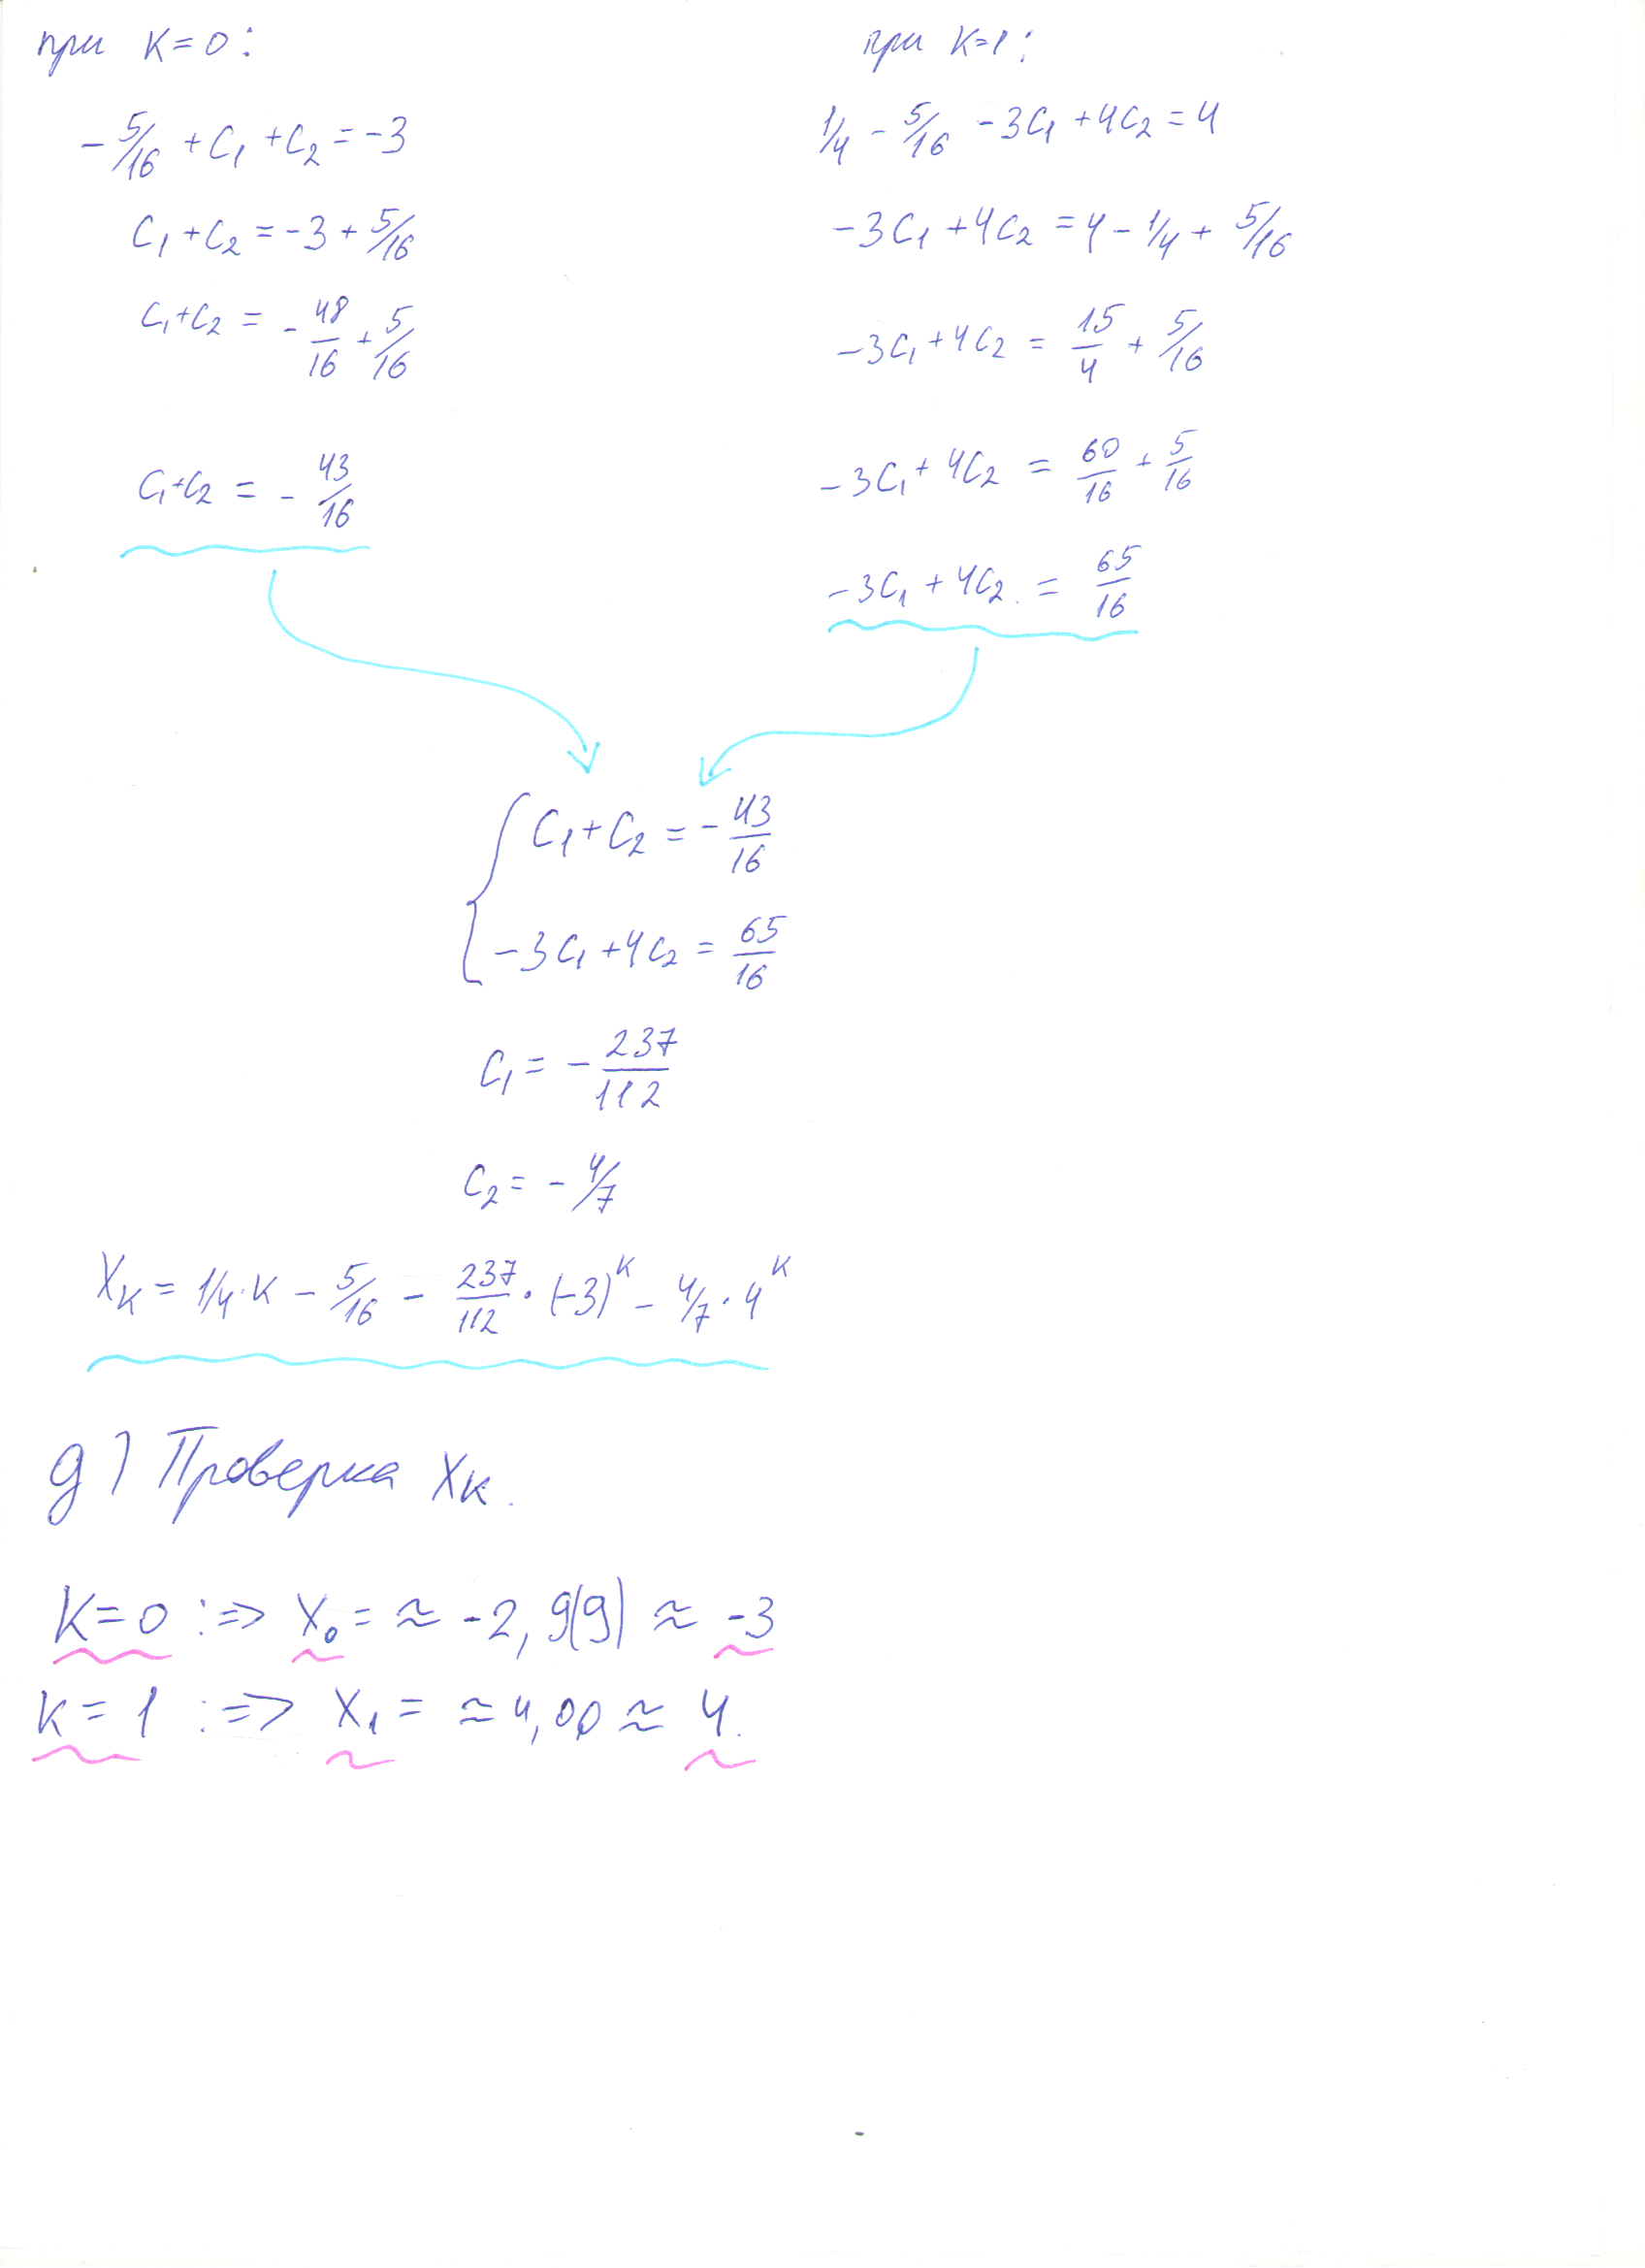 при K=0:
-5/16 + C₁ + C₂ = -3
C₁ + C₂ = -3 + 5/16
C₁+C₂ = - 48/16 + 5/16
C₁+C₂ = - 43/16
при K=1:
1/4 - 5/16 - 3C₁ + 4C₂ = 4
-3C₁ + 4C₂ = 4 - 1/4 + 5/16
-3C₁ + 4C₂ = 15/4 + 5/16
-3C₁ + 4C₂ = 60/16 + 5/16
-3C₁ + 4C₂ = 65/16
{ C₁ + C₂ = - 43/16
-3C₁ + 4C₂ = 65/16
C₁ = - 237/112
C₂ = - 4/7
Xₖ = 1/4·K - 5/16 - 237/112 · (-3)ᴷ - 4/7 · 4ᴷ
д) Проверка Xₖ.
K=0 :=> X₀ = ≈ -2,9(9) ≈ -3
K=1 :=> X₁ = ≈ 4,00 ≈ 4.